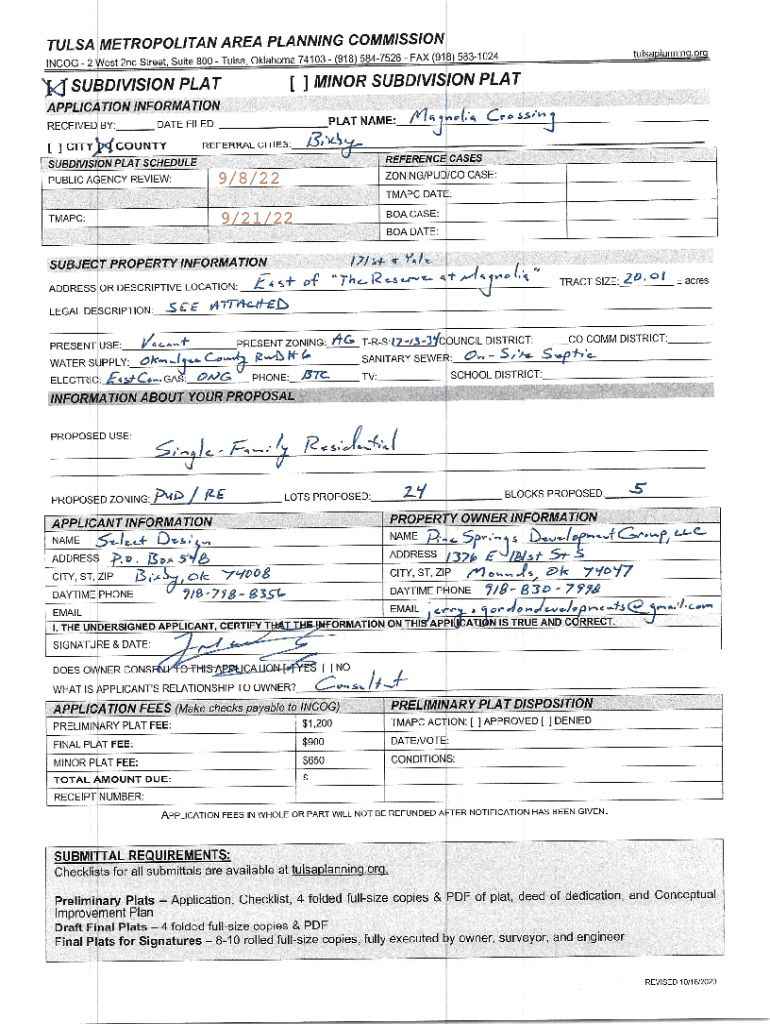 TULSA METROPOLITAN AREA PLANNING COMMISSION
INCOG - 2 West 2nd Street, Suite 800 - Tulsa, Oklahoma 74103 - (918) 584-7526 - FAX (918) 583-1024 tulsaplanning.org
[X] SUBDIVISION PLAT [ ] MINOR SUBDIVISION PLAT
APPLICATION INFORMATION
RECEIVED BY: DATE FILED: PLAT NAME: Magnolia Crossing
[ ] CITY [X] COUNTY REFERRAL CITIES: Bixby
SUBDIVISION PLAT SCHEDULE REFERENCE CASES
PUBLIC AGENCY REVIEW: 9/8/22 ZONING/PUD/CO CASE:
TMAPC DATE:
TMAPC: 9/21/22 BOA CASE:
BOA DATE:
SUBJECT PROPERTY INFORMATION 171st & Yale
ADDRESS OR DESCRIPTIVE LOCATION: East of "The Reserve at Magnolia" TRACT SIZE: 20.01 ± acres
LEGAL DESCRIPTION: SEE ATTACHED
PRESENT USE: Vacant PRESENT ZONING: AG T-R-S: 17-13-34 COUNCIL DISTRICT: CO COMM DISTRICT:
WATER SUPPLY: Okmulgee County RWD # 6 SANITARY SEWER: On-Site Septic
ELECTRIC: East Cen. GAS: ONG PHONE: BTC TV: SCHOOL DISTRICT:
INFORMATION ABOUT YOUR PROPOSAL
PROPOSED USE: Single-Family Residential
PROPOSED ZONING: PUD / RE LOTS PROPOSED: 24 BLOCKS PROPOSED: 5
APPLICANT INFORMATION PROPERTY OWNER INFORMATION
NAME Select Design NAME Pine Springs Development Group, LLC
ADDRESS P.O. Box 548 ADDRESS 1376 E 181st St S
CITY, ST, ZIP Bixby, OK 74008 CITY, ST, ZIP Mounds, OK 74047
DAYTIME PHONE 918-798-8356 DAYTIME PHONE 918-830-7998
EMAIL EMAIL jerry.gordondevelopments@gmail.com
I, THE UNDERSIGNED APPLICANT, CERTIFY THAT THE INFORMATION ON THIS APPLICATION IS TRUE AND CORRECT.
SIGNATURE & DATE:
DOES OWNER CONSENT TO THIS APPLICATION [✓] YES [ ] NO
WHAT IS APPLICANT'S RELATIONSHIP TO OWNER? Consultant
APPLICATION FEES (Make checks payable to INCOG) PRELIMINARY PLAT DISPOSITION
PRELIMINARY PLAT FEE: $1,200 TMAPC ACTION: [ ] APPROVED [ ] DENIED
FINAL PLAT FEE: $900 DATE/VOTE:
MINOR PLAT FEE: $650 CONDITIONS:
TOTAL AMOUNT DUE: $
RECEIPT NUMBER:
APPLICATION FEES IN WHOLE OR PART WILL NOT BE REFUNDED AFTER NOTIFICATION HAS BEEN GIVEN.
SUBMITTAL REQUIREMENTS:
Checklists for all submittals are available at tulsaplanning.org.
Preliminary Plats – Application, Checklist, 4 folded full-size copies & PDF of plat, deed of dedication, and Conceptual
Improvement Plan
Draft Final Plats – 4 folded full-size copies & PDF
Final Plats for Signatures – 8-10 rolled full-size copies, fully executed by owner, surveyor, and engineer
REVISED 10/16/2020